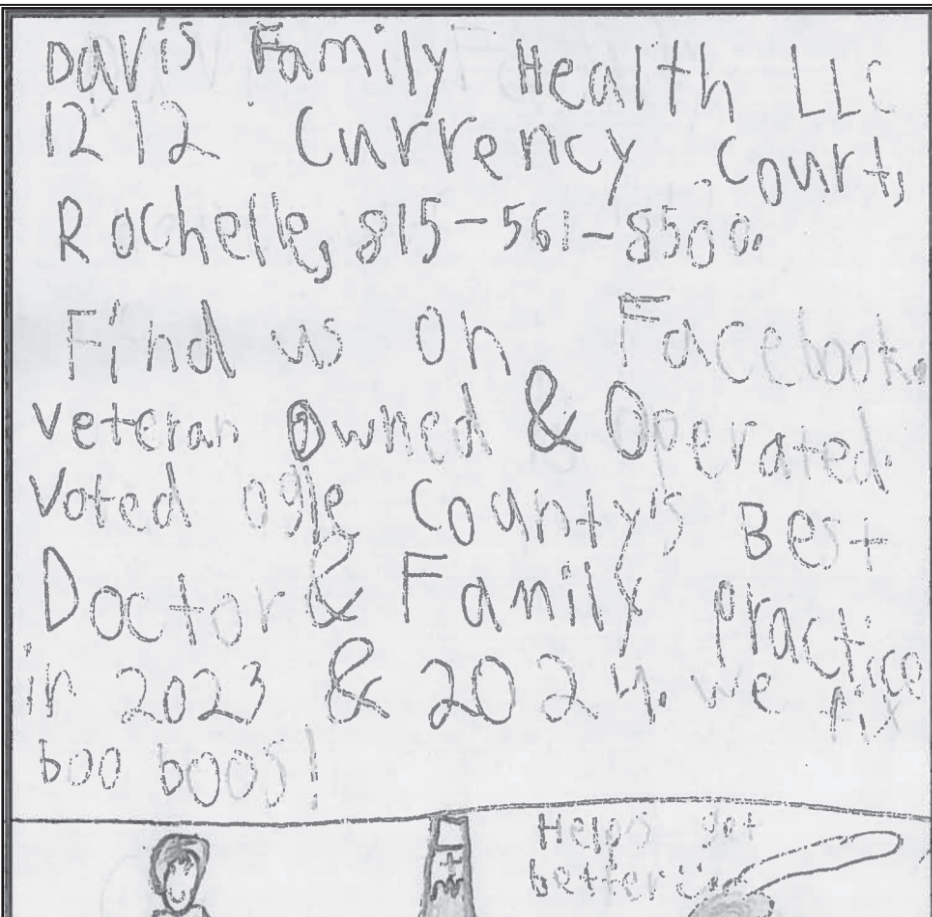 Davis Family Health LLC
1212 Currency Court,
Rochelle, 815-561-8500.
Find us on Facebook.
Veteran Owned & Operated.
Voted ogle County's Best
Doctor & Family practice
in 2023 & 2024. we fix
boo boos!
Helps get
better